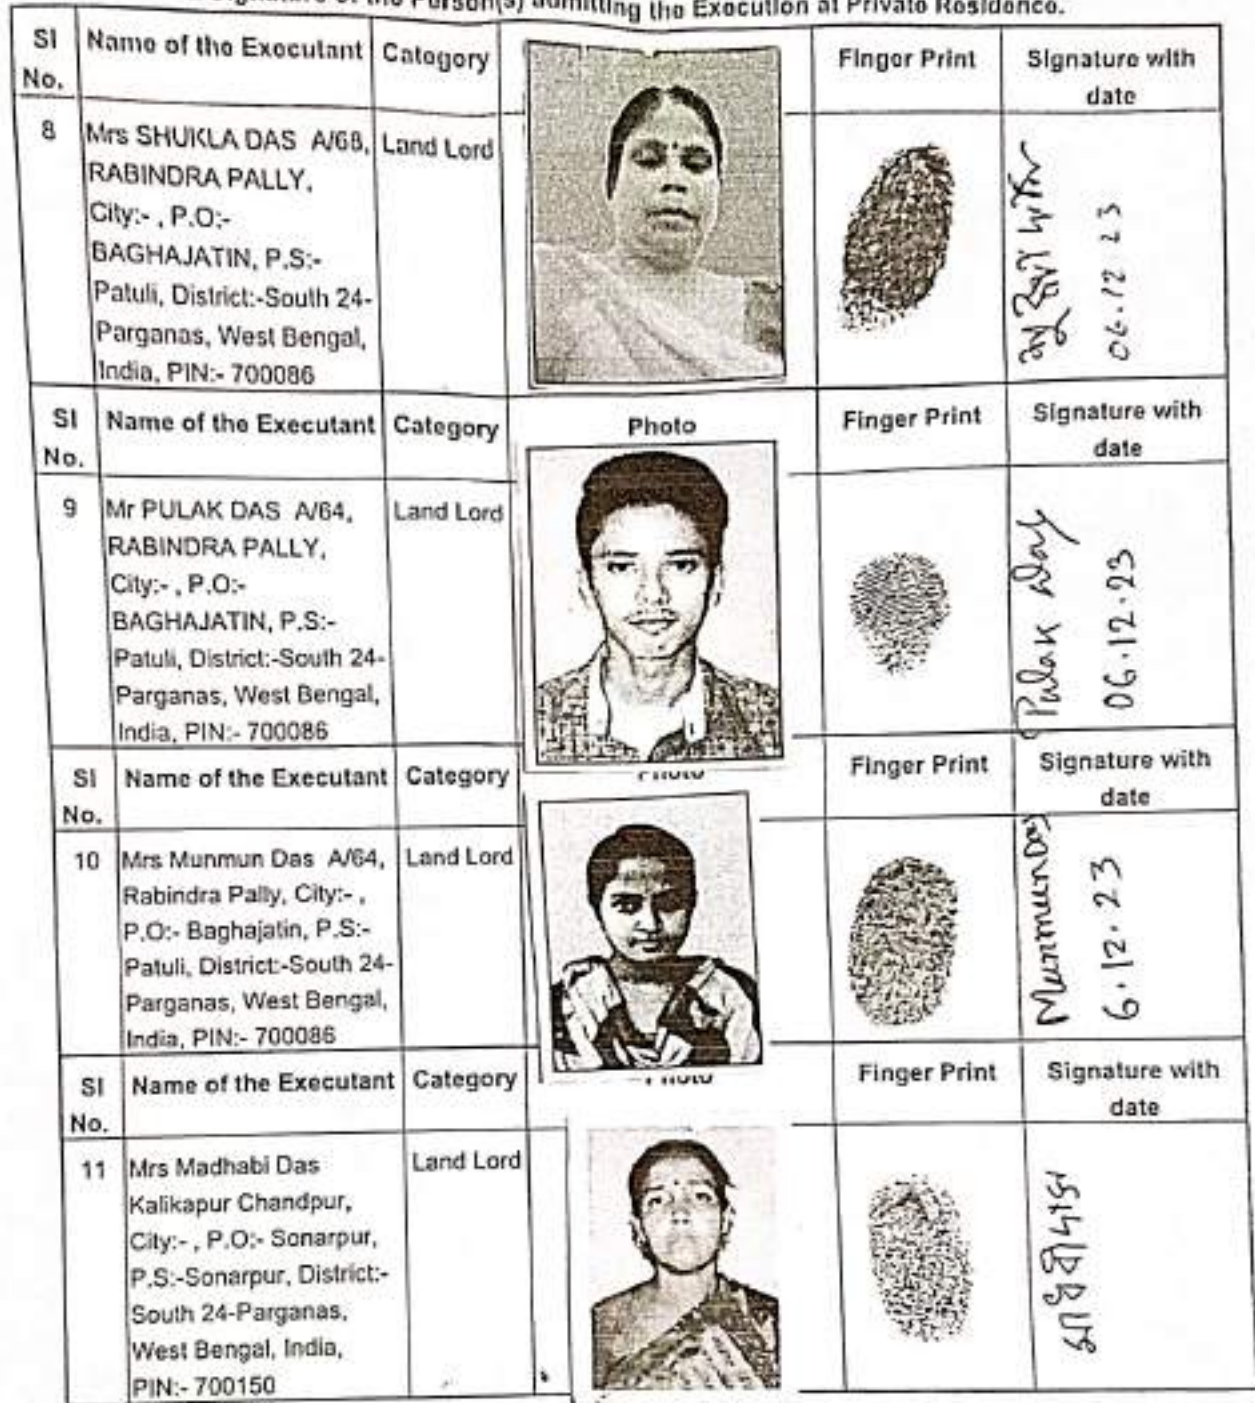 Signature of the Person(s) admitting the Execution at Private Residence.
Sl No. Name of the Executant Category Finger Print Signature with date
8 Mrs SHUKLA DAS A/68, Land Lord
RABINDRA PALLY,
City:- , P.O:-
BAGHAJATIN, P.S:-
Patuli, District:-South 24-
Parganas, West Bengal,
India, PIN:- 700086
06.12.23
Sl No. Name of the Executant Category Photo Finger Print Signature with date
9 Mr PULAK DAS A/64, Land Lord
RABINDRA PALLY,
City:- , P.O:-
BAGHAJATIN, P.S:-
Patuli, District:-South 24-
Parganas, West Bengal,
India, PIN:- 700086
Pulak Das
06.12.23
Sl No. Name of the Executant Category Photo Finger Print Signature with date
10 Mrs Munmun Das A/64, Land Lord
Rabindra Pally, City:- ,
P.O:- Baghajatin, P.S:-
Patuli, District:-South 24-
Parganas, West Bengal,
India, PIN:- 700086
Munmun Das
6.12.23
Sl No. Name of the Executant Category Photo Finger Print Signature with date
11 Mrs Madhabi Das Land Lord
Kalikapur Chandpur,
City:- , P.O:- Sonarpur,
P.S:-Sonarpur, District:-
South 24-Parganas,
West Bengal, India,
PIN:- 700150
মাধবী দাস